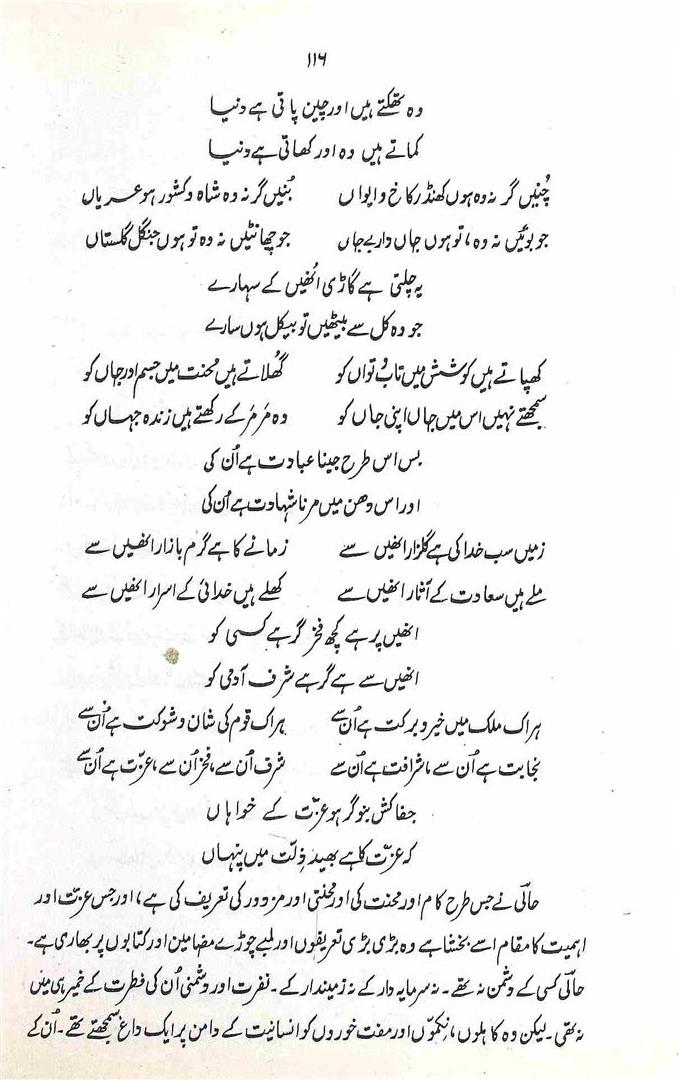 ۱۱۶
وہ تھکتے ہیں اور چین پاتی ہے دنیا
کماتے ہیں وہ اور کھاتی ہے دنیا
چُنیں گر نہ وہ ہوں کھنڈر کاخ و ایواں بُنیں گر نہ وہ شاہ و کشور ہو عریاں
جو بوئیں نہ وہ، تو ہوں جاں دار بے جاں جو چھانٹیں نہ وہ تو ہوں جنگل گلستاں
یہ چلتی ہے گاڑی انھیں کے سہارے
جو وہ کل سے بیٹھیں تو بیکل ہوں سارے
کھپاتے ہیں کوشش میں تاب و تواں کو گھُلاتے ہیں محنت میں جسم اور جاں کو
سمجھتے نہیں اس میں جاں اپنی جاں کو وہ مَر مَر کے رکھتے ہیں زندہ جہاں کو
بس اس طرح جینا عبادت ہے اُن کی
اور اس دھن میں مرنا شہادت ہے اُن کی
زمیں سب خدا کی ہے گلزار انھیں سے زمانے کا ہے گرم بازار انھیں سے
ملے ہیں سعادت کے آثار انھیں سے کھلے ہیں خدائی کے اسرار انھیں سے
انھیں پر ہے کچھ فخر گر ہے کسی کو
انھیں سے ہے گر ہے شرف آدمی کو
ہر اک ملک میں خیر و برکت ہے اُن سے ہر اک قوم کی شان و شوکت ہے اُن سے
نجابت ہے اُن سے، شرافت ہے اُن سے شرف اُن سے، فخر اُن سے، عزّت ہے اُن سے
جفاکش بنو گر ہو عزّت کے خواہاں
کہ عزّت کا ہے بھید ذِلّت میں پنہاں
حالؔی نے جس طرح کام اور محنت کی اور محنتی اور مزدور کی تعریف کی ہے، اور جس عزت اور
اہمیت کا مقام اسے بخشا ہے وہ بڑی بڑی تعریفوں اور لمبے چوڑے مضامین اور کتابوں پر بھاری ہے۔
حالؔی کسی کے دشمن نہ تھے۔ نہ سرمایہ دار کے نہ زمیندار کے۔ نفرت اور دشمنی اُن کی فطرت کے خمیر ہی میں
نہ تھی۔ لیکن وہ کاہلوں، نکمّوں اور مفت خوروں کو انسانیت کے دامن پر ایک داغ سمجھتے تھے۔ اُن کے